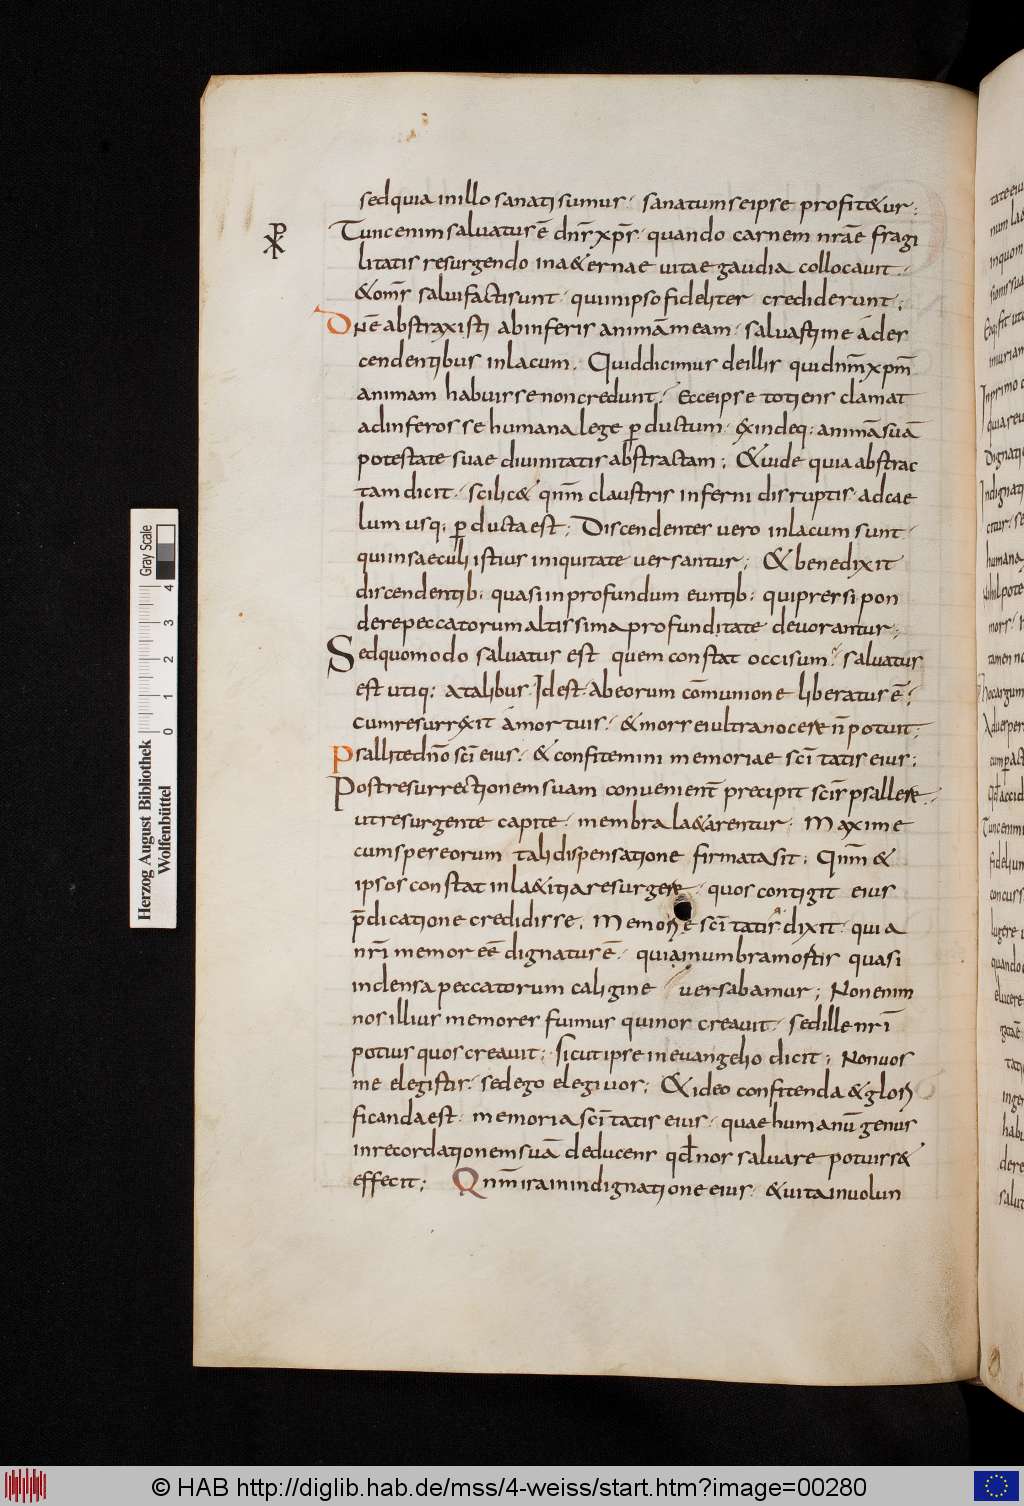 sed quia in illo sanati sumus · sanatum se ipse profit&ur ;
Tunc enim saluatus ē dn̄s xp̄s · quando carnem nr̄ae fragi
litatis resurgendo in a&ernae uitae gaudia collocauit ·
& om̄s salui facti sunt · qui in ipso fideliter crediderunt ;
Dn̄e abstraxisti ab inferis animā meam · saluasti me a des
cendentibus in lacum . Quid dicimus de illis qui dn̄m xp̄m
animam habuisse non credunt ? Ecce ipse totiens clamat
ad inferos se humana lege ꝑductum · exindeq; animā suā
potestate suae diuinitatis abstractam ; & uide quia abstrac
tam dicit · scilic& qn̄m claustris inferni disruptis · ad cae
lum usq; ꝑducta est ; Discendentes uero in lacum sunt ·
qui in saeculi istius iniquitate uersantur ; & bene dixit
discendentib; quasi in profundum euntib; qui pressi pon
dere peccatorum altissima profunditate deuorantur ;
Sed quomodo saluatus est quem constat occisum ? saluatus
est utiq; a talibus · Idest · ab eorum cōmunione liberatus ē ;
cum resurrexit a mortuis · & mors ei ultra nocere n̄ potuit ;
Psallite dn̄o sc̄i eius · & confitemini memoriae sc̄itatis eius ;
Post resurrectionem suam conuenient̄ precipit sc̄is psallere ·
ut resurgente capite · membra la&arentur · Maxime
cum spes eorum tali dispensatione firmata sit ; Qn̄m &
ipsos constat in la&itia resurgere · quos contigit eius
p̄dicatione credidisse ; Memoriae sc̄itatis dixit · quia
nr̄i memor eē dignatus ē · quia in umbra mortis quasi
in densa peccatorum caligine uersabamur ; Non enim
nos illius memores fuimus qui nos creauit · sed ille nr̄i
potius quos creauit ; sicut ipse in euangelio dicit ; Non uos
me elegistis · sed ego elegi uos ; & ideo confitenda & glori
ficanda est · memoria sc̄itatis eius · quae humanū genus
in recordationem suā deducens qđ nos saluare potuiss&
effecit ; Qn̄m ira in indignatione eius · & uita in uolun
Herzog August Bibliothek
Wolfenbüttel
0 1 2 3 4
Gray Scale
© HAB http://diglib.hab.de/mss/4-weiss/start.htm?image=00280